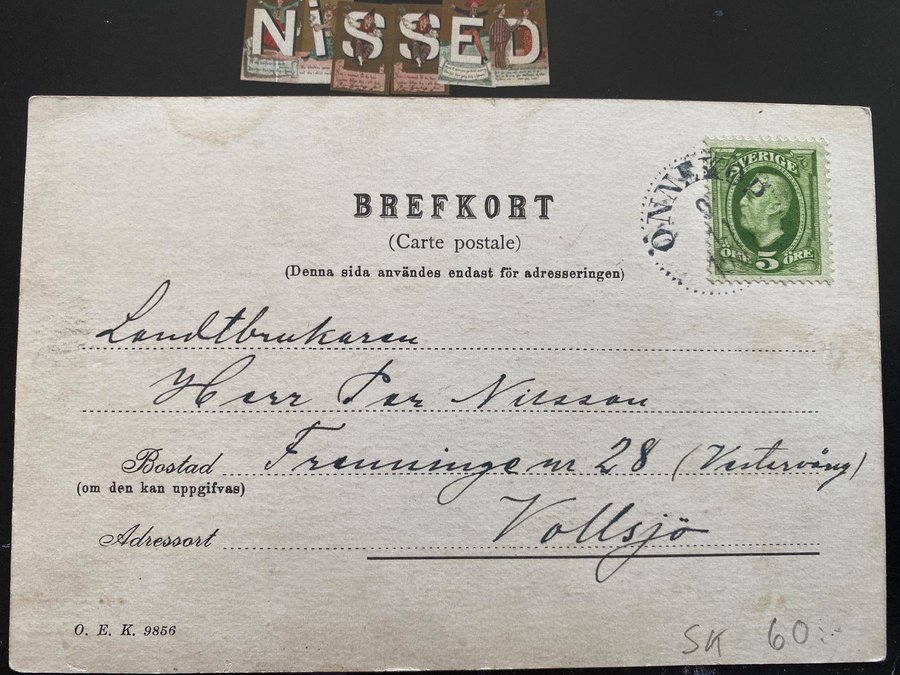 NISSED
BREFKORT
(Carte postale)
(Denna sida användes endast för adresseringen)
ÖNNEKÖP
SVERIGE
ÖRE 5 ÖRE
Landtbrukaren
Herr Per Nilsson
Bostad Frenninge nr 28 (Vestervång)
(om den kan uppgifvas)
Adressort Vollsjö
O. E. K. 9856
SK 60:-